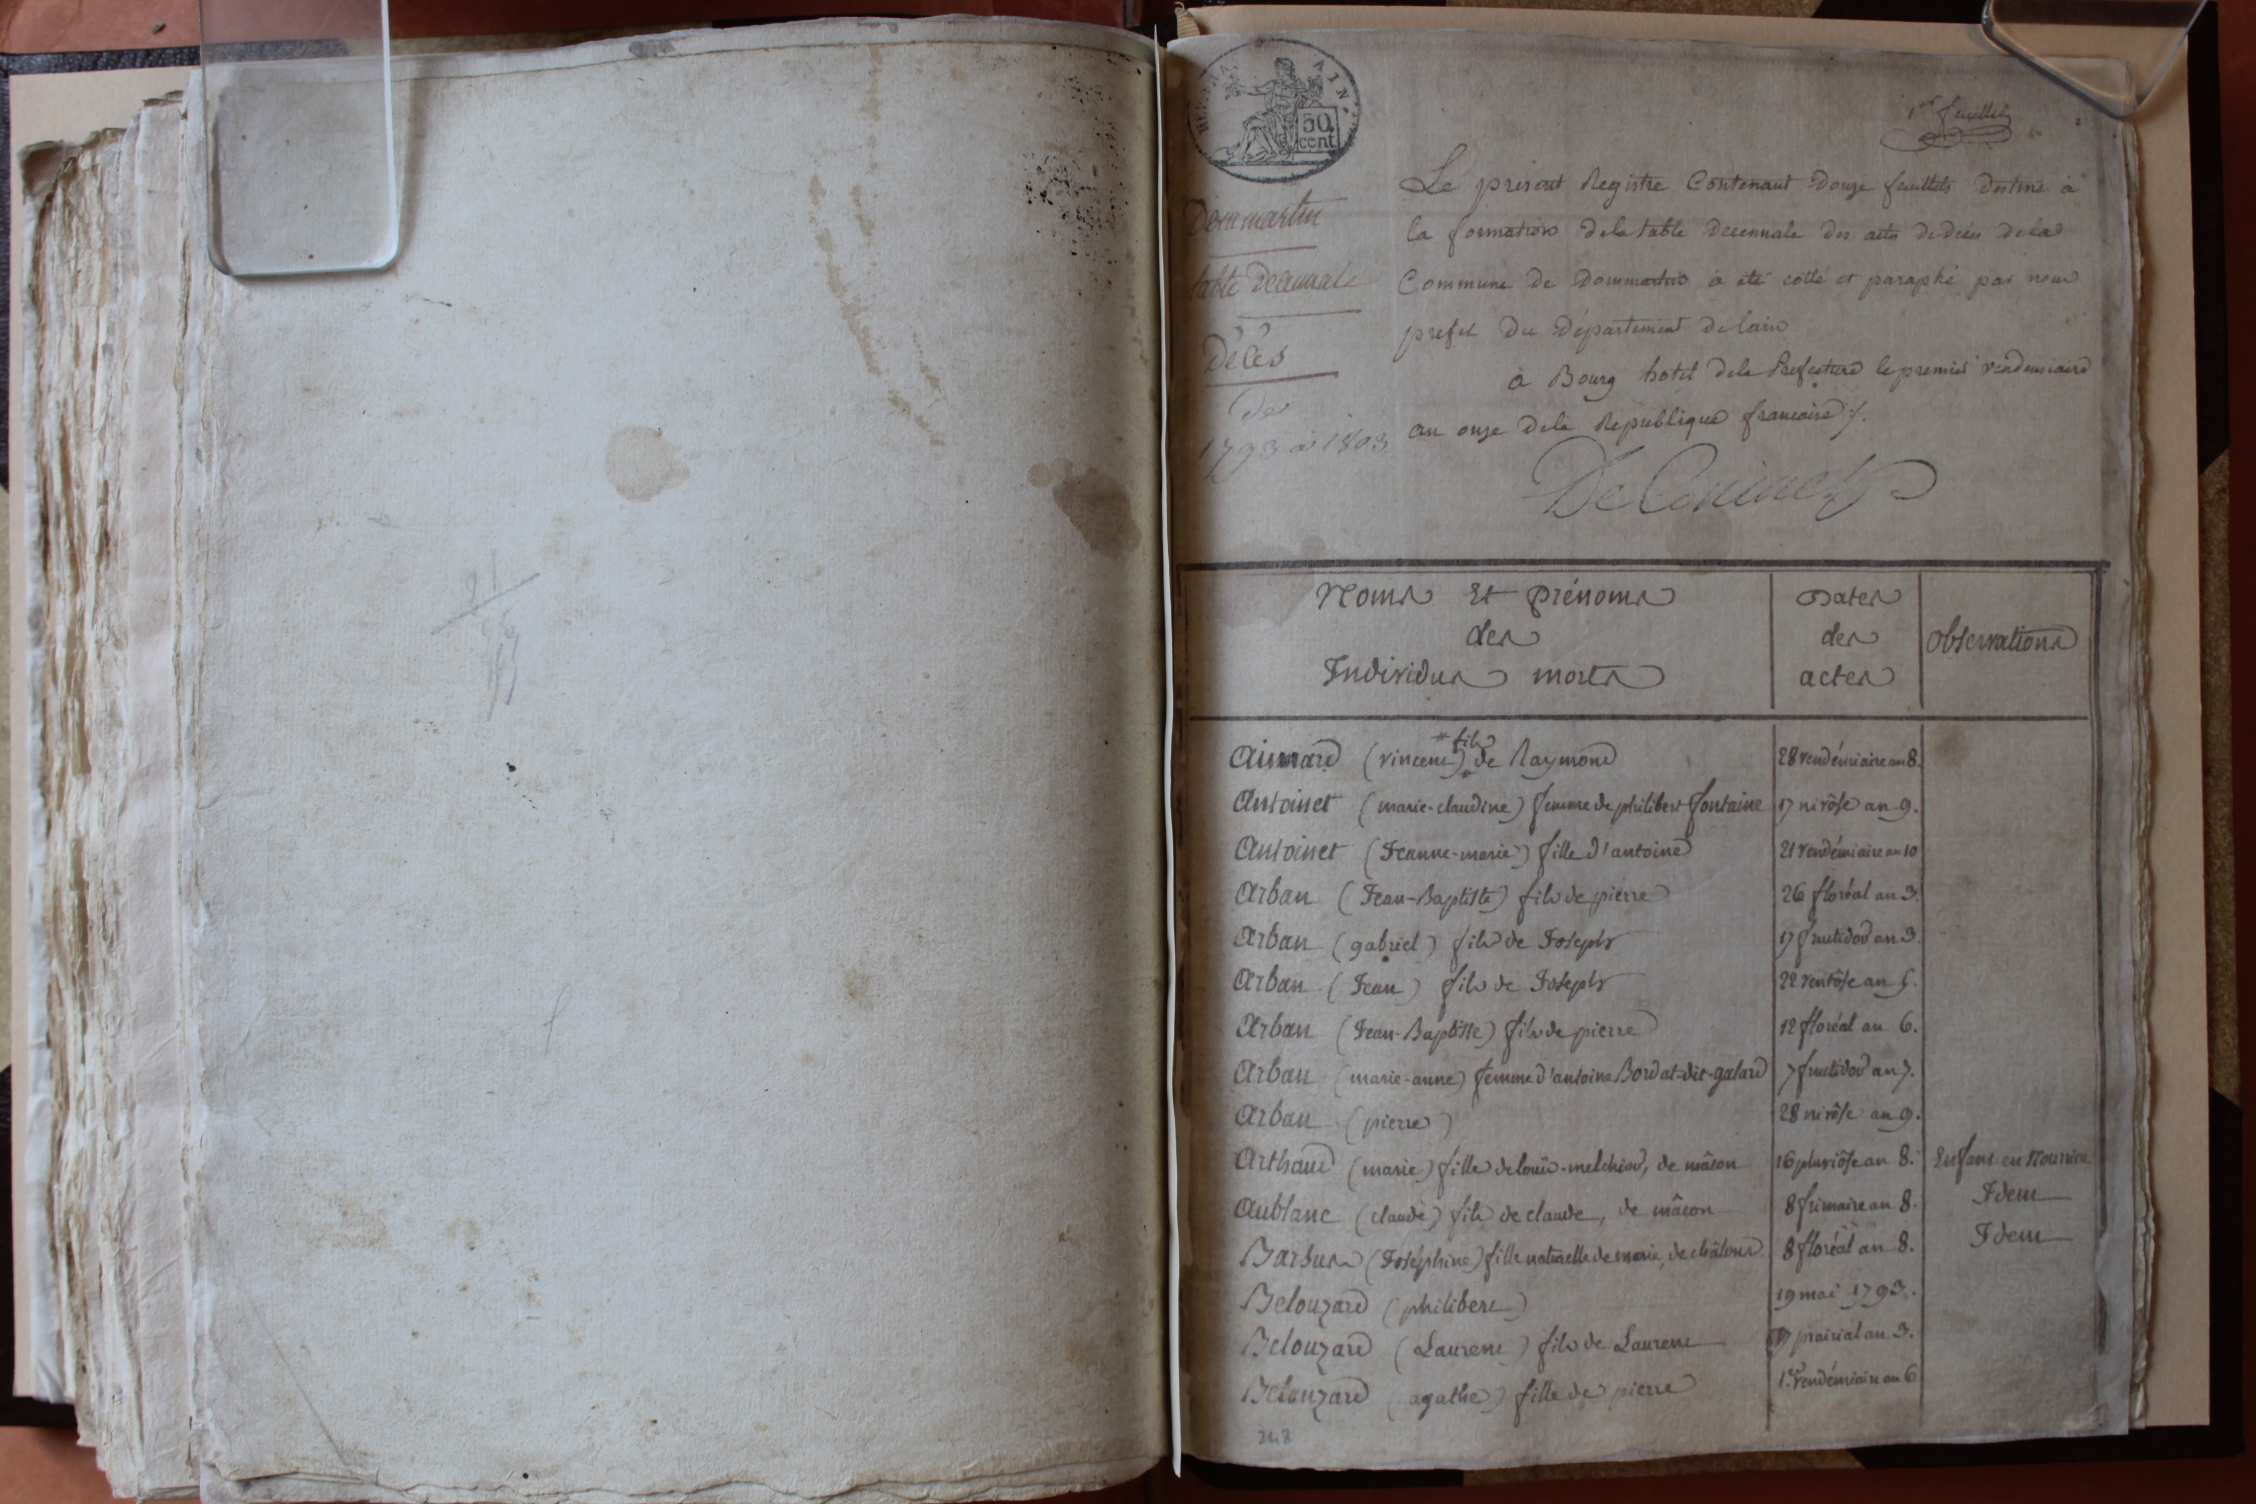 AIN.
50
cent
1er feuillet
Dommartin
table Decennale
Décès
de
1793 à 1803
Le présent Registre Contenant Douze feuillets Destiné à
la formation dela table decennale des actes de décès dela
Commune de Dommartin à été cotté et paraphé par nous
prefet Du Département de lain
à Bourg hotel dela Prefecture le premier vendemiaire
an onze dela Republique francaise
Noms Et prénoms
des
Individus morts
Dates
des
actes
observations
Aimard (vincent) fils de Raymond 28 vendémiaire an 8.
Antoinet (marie-claudine) femme de philibert fontaine 17 nivôse an 9.
Antoinet (Jeanne-marie) fille d'antoine 21 vendémiaire an 10
Arban (Jean-Baptiste) fils de pierre 26 floréal an 3.
Arban (gabriel) fils de Joseph 17 fructidor an 3.
Arban (Jean) fils de Joseph 22 ventôse an 5.
Arban (Jean-Baptiste) fils de pierre 12 floréal an 6.
Arban (marie-anne) femme d'antoine Bordat-dit-galard 7 fructidor an 7.
Arban (pierre) 28 nivôse an 9.
Arthaud (marie) fille de louis-melchior, de mâcon 16 pluviôse an 8. Enfant en Nourrice
Aublanc (claude) fils de claude, de mâcon 8 frimaire an 8. Idem
Barbus (Joséphine) fille naturelle de marie, de châlons 8 floréal an 8. Idem
Belouzard (philibert) 19 mai 1793.
Belouzard (Laurent) fils de Laurent prairial an 3.
Belouzard (agathe) fille de pierre 1er vendémiaire an 6
248